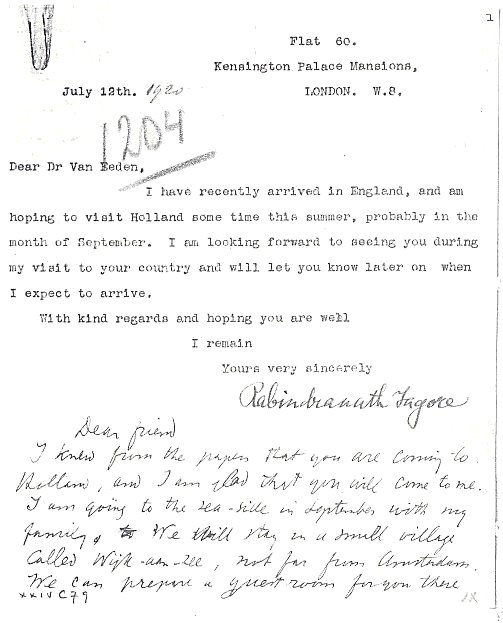 1
Flat 60.
Kensington Palace Mansions,
July 12th. 1920 LONDON. W.8.
1204
Dear Dr Van Eeden,
I have recently arrived in England, and am
hoping to visit Holland some time this summer, probably in the
month of September. I am looking forward to seeing you during
my visit to your country and will let you know later on when
I expect to arrive.
With kind regards and hoping you are well
I remain
Yours very sincerely
Rabindranath Tagore
Dear friend
I knew from the papers that you are coming to
Holland, and I am glad that you will come to me.
I am going to the sea-side in September with my
family, We will stay in a small village
called Wijk-aan-zee, not far from Amsterdam.
We can prepare a guest room for you there
XXIV C 79